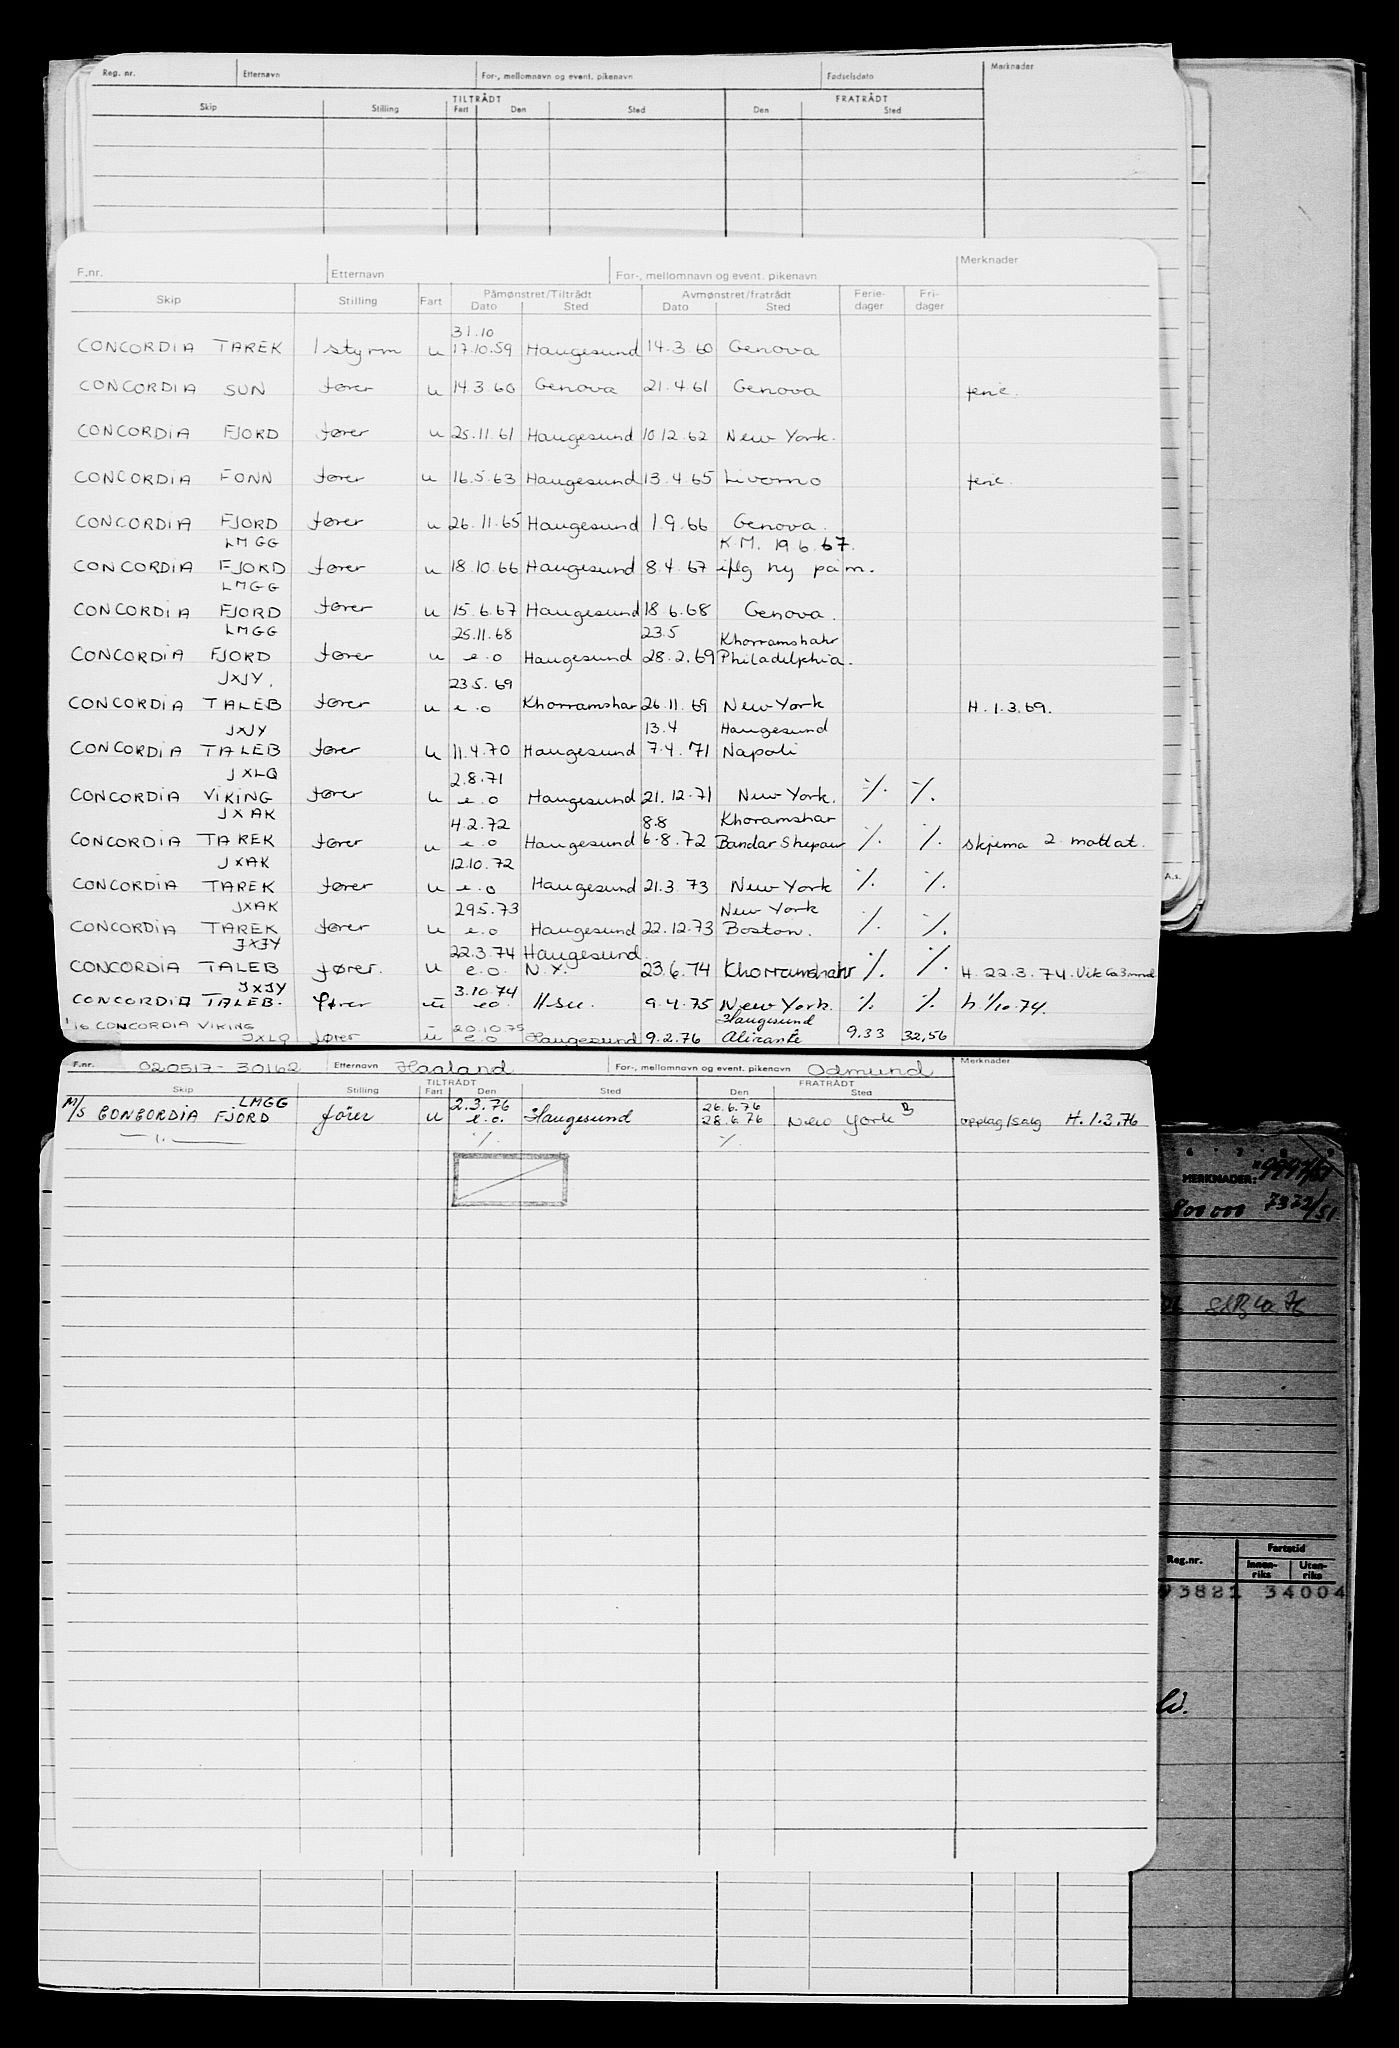 Reg. nr. Etternavn For-, mellomnavn og event. pikenavn Fødselsdato Merknader
TILTRÅDT FRATRÅDT
Skip Stilling Fart Den Sted Den Sted
F.nr. Etternavn For-, mellomnavn og event. pikenavn Merknader
Påmønstret/Tiltrådt Avmønstret/fratrådt Ferie- Fri-
Skip Stilling Fart Dato Sted Dato Sted dager dager
31.10
CONCORDIA TAREK 1 styrm u 17.10.59 Haugesund 14.3.60 Genova
CONCORDIA SUN fører u 14.3.60 Genova 21.4.61 Genova ferie.
CONCORDIA FJORD fører u 25.11.61 Haugesund 10.12.62 New York.
CONCORDIA FONN fører u 16.5.63 Haugesund 13.4.65 Livorno ferie.
CONCORDIA FJORD fører u 26.11.65 Haugesund 1.9.66 Genova.
LMGG K.M. 19.6.67.
CONCORDIA FJORD fører u 18.10.66 Haugesund 8.4.67 iflg ny påm.
LMGG
CONCORDIA FJORD fører u 15.6.67 Haugesund 18.6.68 Genova.
LMGG 25.11.68 23.5 Khorramshahr
CONCORDIA FJORD fører u e.o Haugesund 28.2.69 Philadelphia.
JXJY. 23.5.69
CONCORDIA TALEB fører u e.o Khorramshar 26.11.69 New York H. 1.3.69.
JXJY 13.4 Haugesund
CONCORDIA TALEB fører u 11.4.70 Haugesund 7.4.71 Napoli
JXLQ 2.8.71
CONCORDIA VIKING fører u e.o Haugesund 21.12.71 New York. ./. ./.
JXAK 4.2.72 8.8 Khoramshar
CONCORDIA TAREK fører u e.o Haugesund 6.8.72 Bandar Shepaur ./. ./. skjema 2 mottat.
JXAK 12.10.72
CONCORDIA TAREK fører u e.o Haugesund 21.3.73 New York ./. ./.
JXAK 29.5.73 New York
CONCORDIA TAREK fører u e.o Haugesund 22.12.73 Boston. ./. ./.
JXJY 22.3.74 Haugesund.
CONCORDIA TALEB fører. u e.o. N.Y. 23.6.74 Khorramshahr ./. ./. H. 22.3.74. Vik ca 3 mnd
JXJY 3.10.74
CONCORDIA TALEB. fører u eo. H.su. 9.4.75 New York. ./. ./. h. 1/10.74.
1/16 CONCORDIA VIKING 20.10.75 Haugesund
JXLQ fører u e.o Haugesund 9.2.76 Alicante 9.33 32,56
F.nr. 020517-30162 Etternavn Haaland For-, mellomnavn og event. pikenavn Odmund Merknader
TILTRÅDT FRATRÅDT
Skip Stilling Fart Den Sted Den Sted
LMGG 2.3.76 26.6.76 B
M/S CONCORDIA FJORD fører u e.o. Haugesund 28.6.76 New York opplag/salg H. 1.3.76
— " — ./. ./.
A.s.
6 7 8 9
MERKNADER:
800 000 7372/51
Reg.nr. Fartstid
Innen- Uten-
riks riks
93821 34004